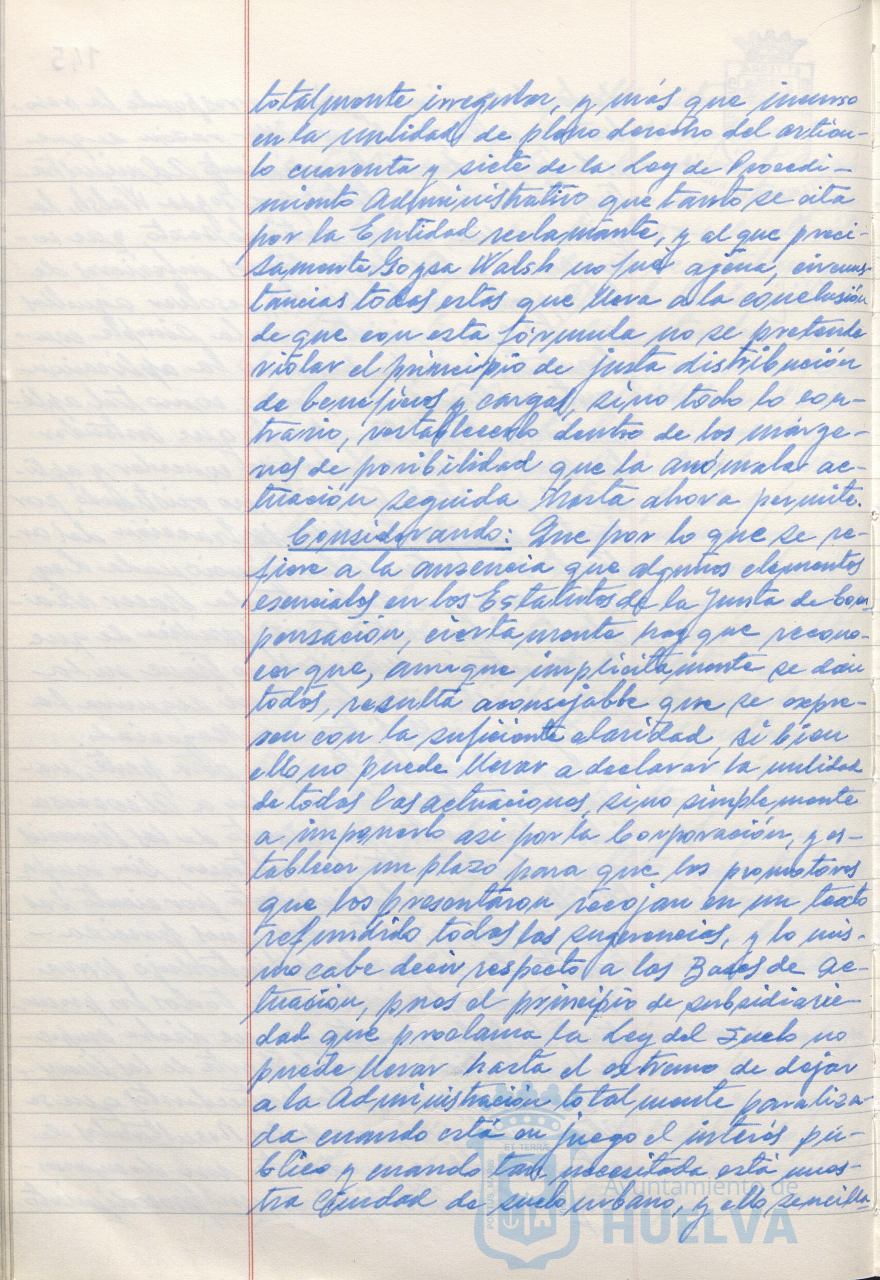 totalmente irregular, y más que incurso
en la nulidad de pleno derecho del artícu-
lo cuarenta y siete de la Ley de Procedi-
miento Administrativo que tanto se cita
por la Entidad reclamante, y al que preci-
samente Goysa Walsh no fué ajena, circuns-
tancias todas estas que lleva a la conclusión
de que con esta fórmula no se pretende
violar el principio de justa distribución
de beneficios y cargas, sino todo lo con-
trario, restablecerlo dentro de los márge-
nes de posibilidad que la anómala ac-
tuación seguida hasta ahora permite.
Considerando: Que por lo que se re-
fiere a la ausencia que algunos elementos
esenciales en los Estatutos de la Junta de Com-
pensación, ciertamente hay que recono-
cer que, aunque implícitamente se dan
todos, resulta aconsejable que se expre-
sen con la suficiente claridad, si bien
ello no puede llevar a declarar la nulidad
de todas las actuaciones, sino simplemente
a imponerlo así por la Corporación, y es-
tablecer un plazo para que los promotores
que los presentaron recojan en un texto
refundido todas las sugerencias, y lo mis-
mo cabe decir respecto a las Bases de Ac-
tuación, pues el principio de subsidiarie-
dad que proclama la Ley del Suelo no
puede llevar hasta el extremo de dejar
a la Administración totalmente paraliza-
da cuando está en juego el interés pú-
blico y cuando tan necesitada está nues-
tra Ciudad de suelo urbano, y ello sencilla-
Ayuntamiento de
HUELVA